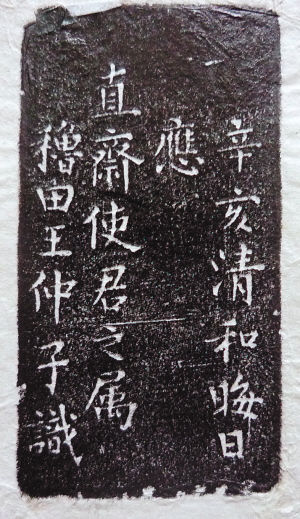 辛亥清和晦日
應
直齋使君之属
穭田王仲子識